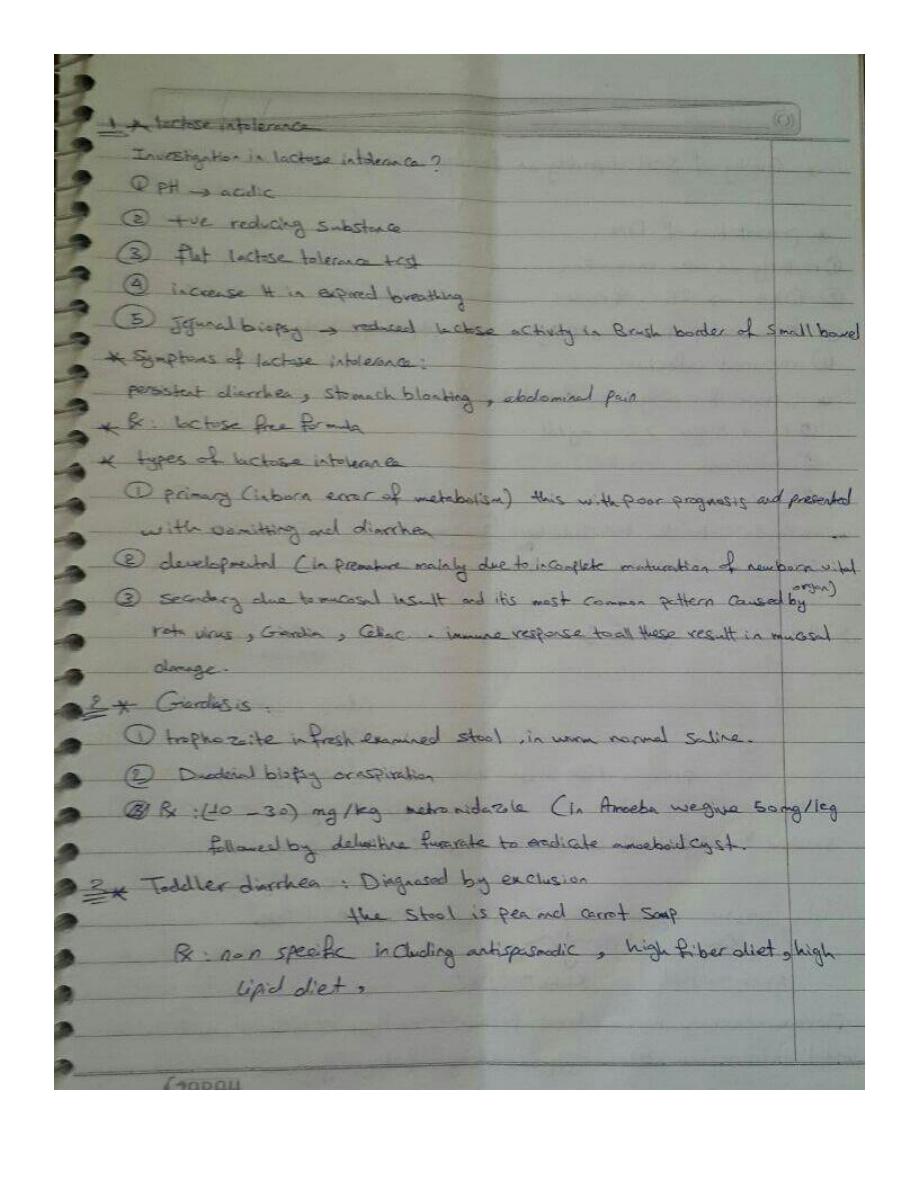 1 * lactose intolerance
Investigation in lactose intolerance?
① PH → acidic
② +ve reducing substance
③ flat lactose tolerance test
④ increase H in expired breathing
⑤ Jejunal biopsy → reduced lactose activity in Brush border of small bowel
* Symptoms of lactose intolerance:
persistent diarrhea, stomach bloating, abdominal pain
* Rx: lactose free formula
* types of lactose intolerance
① primary (inborn error of metabolism) this with poor prognosis and presented
with vomitting and diarrhea
② developmental (in premature mainly due to incomplete maturation of newborn vital
organ)
③ secondary due to mucosal insult and it's most common pattern caused by
rota virus, Giardia, Celiac. immune response to all these result in mucosal
damage.
2 * Giardiasis:
① trophozoite in fresh examined stool, in warm normal saline.
② Duodenal biopsy or aspiration
③ Rx: (10 - 30) mg/kg metronidazole (in Amoeba we give 50mg/kg
followed by furarate to eradicate amoeboid cyst.
3 * Toddler diarrhea: Diagnosed by exclusion
the stool is pea and carrot soup
Rx: non specific including antispasmodic, high fiber diet, high
lipid diet,